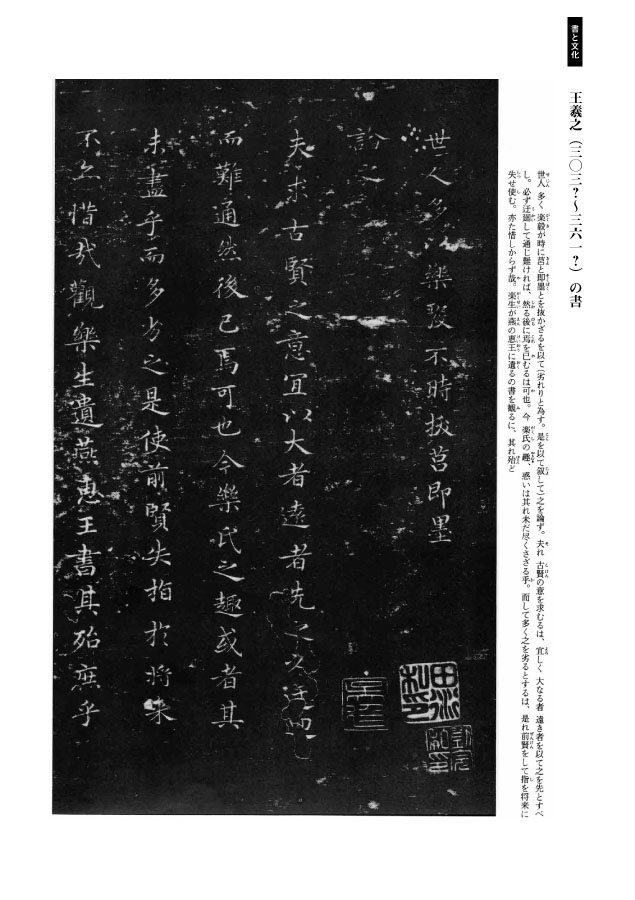 書と文化
王羲之（三〇三？〜三六一？）の書
世人 多く 楽毅が時に莒と即墨とを抜かざるを以て（劣れりと為す。是を以て叙して）之を論ず。夫れ 古賢の意を求むるは、宜しく 大なる者 遠き者を以て之を先とすべ
し。必ず迂廻して通じ難ければ、然る後に焉を已むるは可也。今 楽氏の趣、惑いは其れ未だ尽くさざる乎。而して多く之を劣るとするは、是れ前賢をして指を将来に
失せ使む。亦た惜しからず哉。楽生が燕の恵王に遺るの書を観るに、其れ殆ど
世人多以樂毅不時拔莒即墨
論之
夫求古賢之意宜以大者遠者先之必迂迴
而難通然後已焉可也今樂氏之趣或者其
未盡乎而多劣之是使前賢失指於將來
不亦惜哉觀樂生遺燕惠王書其殆庶乎